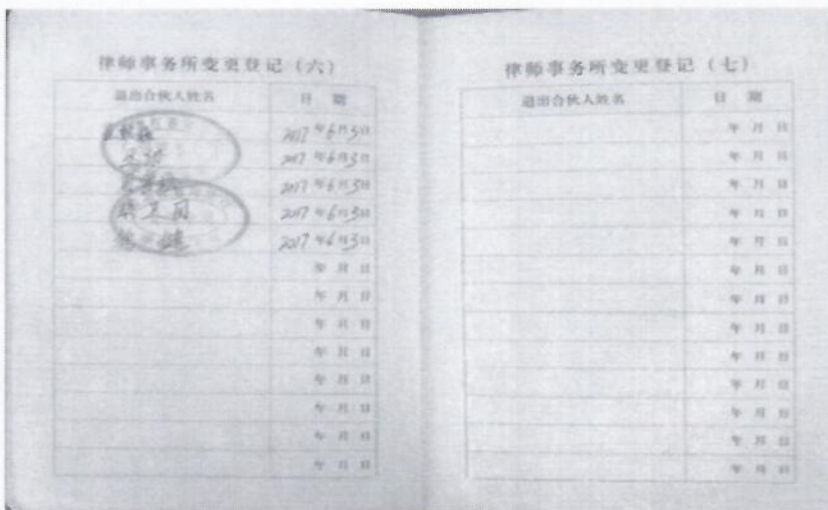 律师事务所变更登记（六）
退出合伙人姓名 日 期
2017年6月3日
2017年6月3日
2017年6月3日
卫国 2017年6月3日
2017年6月3日
年 月 日
年 月 日
年 月 日
年 月 日
年 月 日
年 月 日
年 月 日
年 月 日
律师事务所变更登记（七）
退出合伙人姓名 日 期
年 月 日
年 月 日
年 月 日
年 月 日
年 月 日
年 月 日
年 月 日
年 月 日
年 月 日
年 月 日
年 月 日
年 月 日
年 月 日